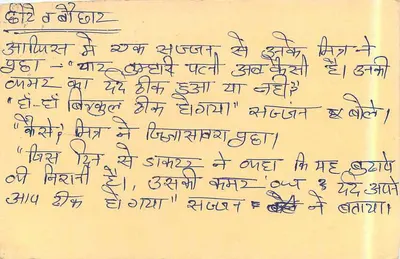 छींटे व बौछार
आफिस में एक सज्जन से उनके मित्र ने
पूछा - "यार तुम्हारी पत्नी अब कैसी है। उनकी
कमर का दर्द ठीक हुआ या नहीं?"
"हाँ-हाँ बिल्कुल ठीक हो गया" सज्जन बोले।
"कैसे" मित्र ने जिज्ञासावश पूछा।
"जिस दिन से डाक्टर ने कहा कि यह बुढ़ापे
की निशानी है।, उसकी कमर का दर्द अपने
आप ठीक हो गया" सज्जन ने बताया।